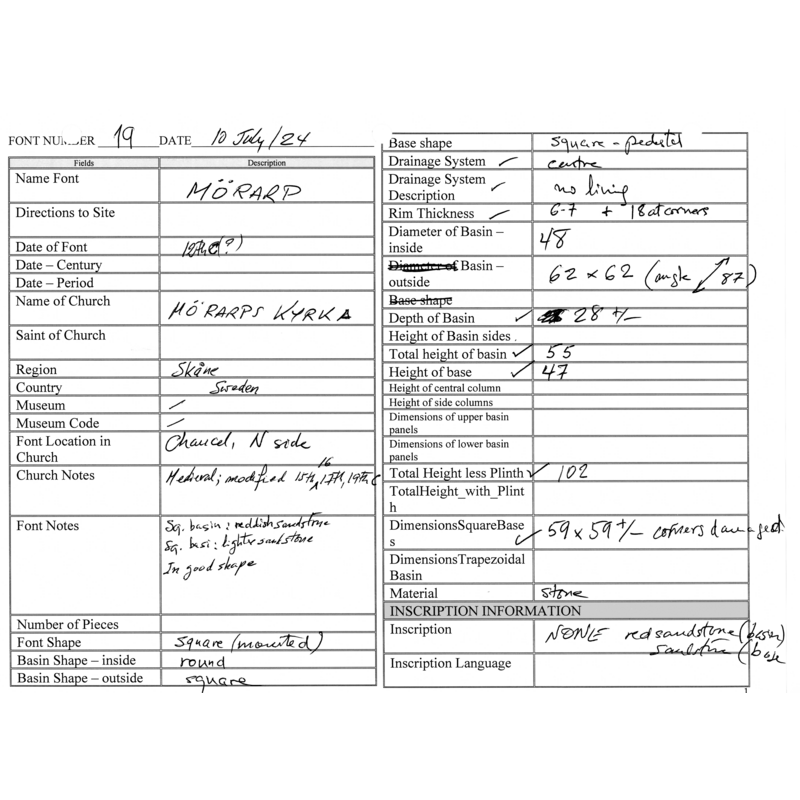 FONT NUMBER 19 DATE 10 July/24
Fields Description
Name Font MÖRARP
Directions to Site
Date of Font 12th c(?)
Date – Century
Date – Period
Name of Church MÖRARPS KYRKA
Saint of Church
Region Skåne
Country Sweden
Museum –
Museum Code –
Font Location in Chancel, N side
Church
Church Notes Medieval; modified 15th, 16, 17th, 19th c
Font Notes Sq. basin: reddish sandstone
Sq. base: lighter sandstone
In good shape
Number of Pieces
Font Shape square (mounted)
Basin Shape – inside round
Basin Shape – outside square
Base shape square – pedestal
Drainage System ✓ centre
Drainage System
Description ✓ no lining
Rim Thickness ✓ 6-7 + 18 at corners
Diameter of Basin –
inside 48
Diameter of Basin –
outside 62 x 62 (angle 87)
Base shape
Depth of Basin ✓ 28 +/-
Height of Basin sides
Total height of basin ✓ 55
Height of base ✓ 47
Height of central column
Height of side columns
Dimensions of upper basin
panels
Dimensions of lower basin
panels
Total Height less Plinth ✓ 102
TotalHeight_with_Plint
h
DimensionsSquareBase
s ✓ 59 x 59 +/- corners damaged
DimensionsTrapezoidal
Basin
Material stone
INSCRIPTION INFORMATION
Inscription NONE red sandstone (basin)
sandstone (base
Inscription Language
1